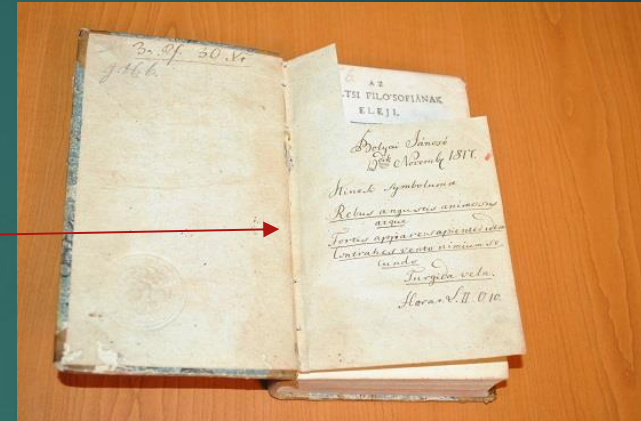 3 30 Xr
g. H. 6.
AZ
TSI FILO'SOFIÁNAK
ELEJI.
Bolyai Jánosé
Novemb 1817.
Kinek Symboluma
Rebus angustis animosus
atque
Fortis appare sapienter idem
Contrahes vento nimium se
cundo
Turgida vela.
Horat. L. II. O 10.